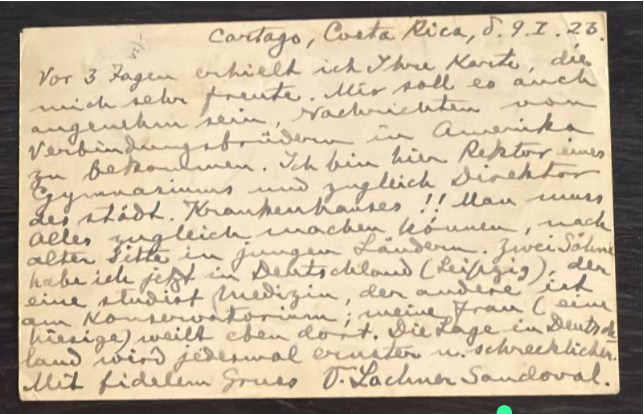 Cartago, Costa Rica, d. 9. I. 23.
Vor 3 Tagen erhielt ich Ihre Karte, die
mich sehr freute. Mir soll es auch
angenehm sein, Nachrichten von
Verbindungsbrüdern in Amerika
zu bekommen. Ich bin hier Rektor eines
Gymnasiums und zugleich Direktor
des städt. Krankenhauses!! Man muss
alles zugleich machen können, nach
alter Sitte in jungen Ländern. Zwei Söhne
habe ich jetzt in Deutschland (Leipzig), der
eine studirt Medizin, der andere ist
am Konservatorium; meine Frau (eine
hiesige) weilt eben dort. Die Lage in Deutsch-
land wird jedesmal ernster u. schrecklicher.
Mit fidelem Gruss V. Lachner Sandoval.